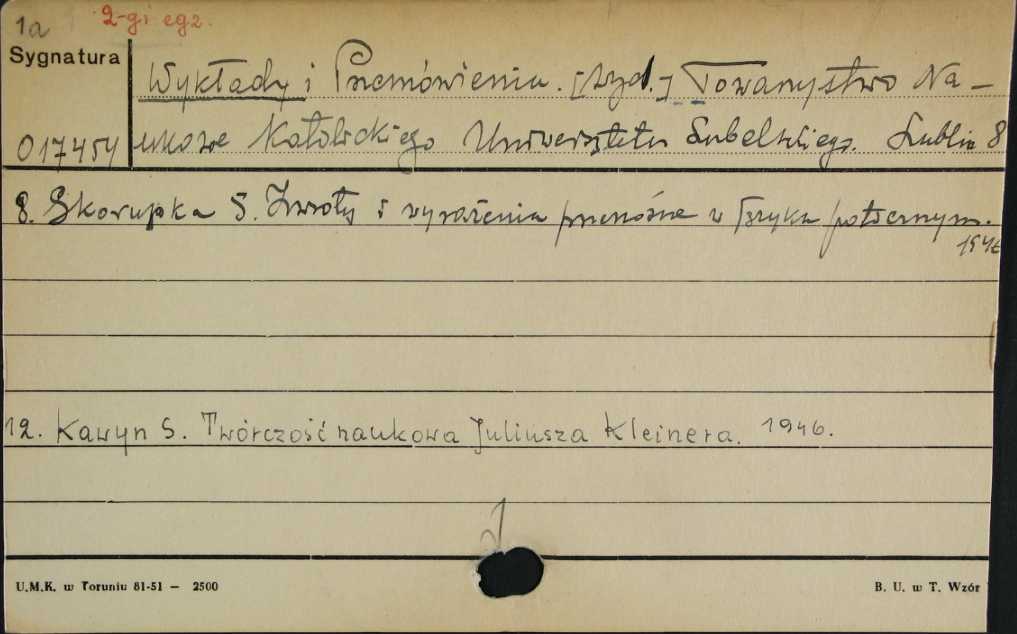 1a 2-gi egz.
Sygnatura
Wykłady i Przemówienia. [Wyd.] Towarzystwo Na-
017454 ukowe Katolickiego Uniwersytetu Lubelskiego. Lublin 8
8. Skorupka S. Zwroty i wyrażenia przenośne w języku potocznym.
1946
12. Kawyn S. Twórczość naukowa Juliusza Kleinera. 1946.
U.M.K. w Toruniu 81-51 — 2500
B. U. w T. Wzór